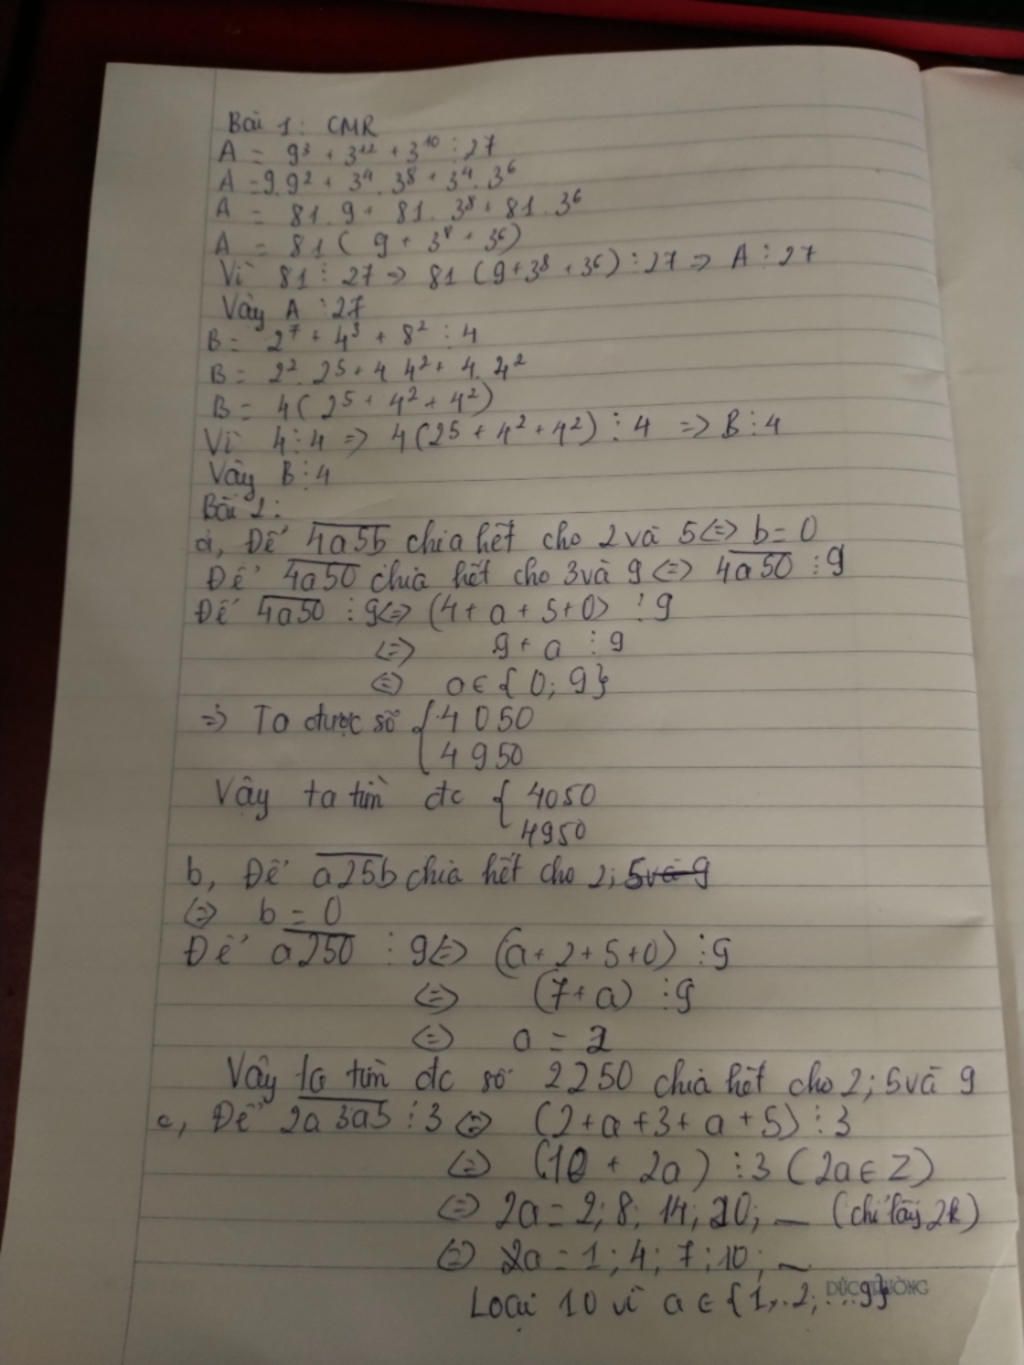 Bài 1: CMR
A = 9³ + 3¹² + 3¹⁰ ⋮ 27
A = 9.9² + 3⁴.3⁸ + 3⁴.3⁶
A = 81.9 + 81.3⁸ + 81.3⁶
A = 81(9 + 3⁸ + 3⁶)
Vì 81 ⋮ 27 => 81(9+3⁸+3⁶) ⋮ 27 => A ⋮ 27
Vậy A ⋮ 27
B = 2⁷ + 4³ + 8² ⋮ 4
B = 2².2⁵ + 4.4² + 4.4²
B = 4(2⁵ + 4² + 4²)
Vì 4 ⋮ 4 => 4(2⁵ + 4² + 4²) ⋮ 4 => B ⋮ 4
Vậy B ⋮ 4
Bài 2:
a, Để 4a5b chia hết cho 2 và 5 <=> b = 0
Để 4a50 chia hết cho 3 và 9 <=> 4a50 ⋮ 9
Để 4a50 ⋮ 9 <=> (4 + a + 5 + 0) ⋮ 9
<=> 9 + a ⋮ 9
<=> a ∈ {0; 9}
=> Ta được số { 4050
4950
Vậy ta tìm đc { 4050
4950
b, Để a25b chia hết cho 2; 5 và 9
<=> b = 0
Để a250 ⋮ 9 <=> (a + 2 + 5 + 0) ⋮ 9
<=> (7 + a) ⋮ 9
<=> a = 2
Vậy ta tìm đc số 2250 chia hết cho 2; 5 và 9
c, Để 2a3a5 ⋮ 3 <=> (2 + a + 3 + a + 5) ⋮ 3
<=> (10 + 2a) ⋮ 3 (2a ∈ Z)
<=> 2a = 2; 8; 14; 20; ... (chỉ lấy 2k)
<=> 2a = 1; 4; 7; 10; ...
Loại 10 vì a ∈ {1, 2; ... 9}